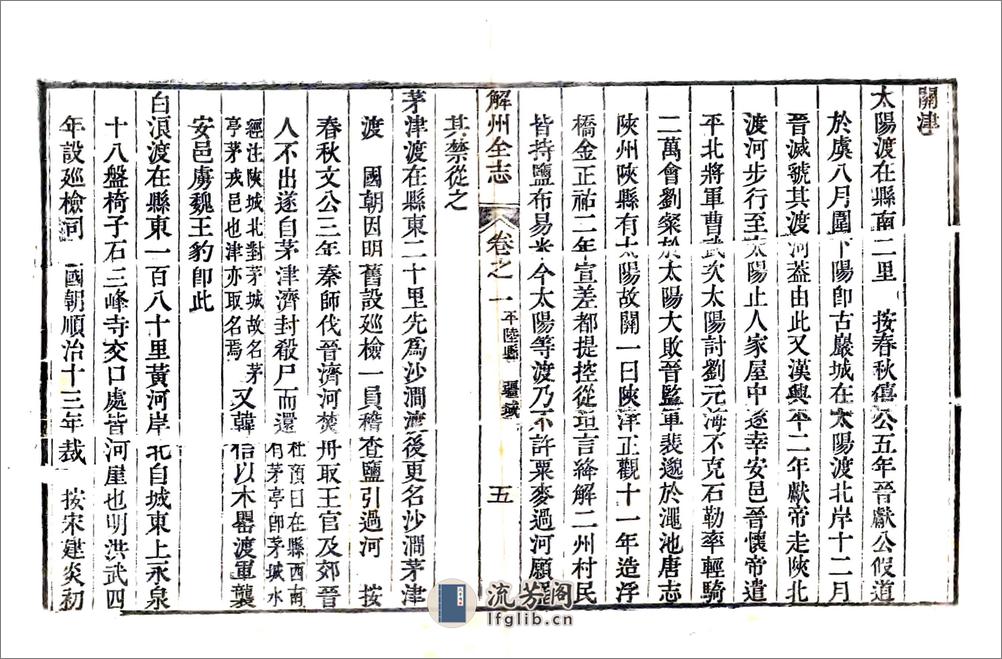 關津
太陽渡在縣南二里　按春秋僖公五年晉獻公假道
於虞八月圍下陽卽古巖城在太陽渡北岸十二月
晉滅虢其渡河葢由此又漢興平二年獻帝走陝北
渡河步行至太陽止人家屋中遂幸安邑晉懷帝遣
平北將軍曹武次太陽討劉元海不克石勒率輕騎
二萬會劉粲於太陽大敗晉監軍裴邈於澠池唐志
陝州陝縣有太陽故關一曰陝津正觀十一年造浮
橋金正祐二年宣差都提控從坦言絳解二州村民
皆持鹽布易米今太陽等渡乃不許粟麥過河願
其禁從之
解州全志　卷之一　平陸縣　疆域　五
茅津渡在縣東二十里先爲沙澗渡後更名沙澗茅津
渡　國朝因明舊設廵檢一員稽查鹽引過河　按
春秋文公三年秦師伐晉濟河焚舟取王官及郊晉
人不出遂自茅津濟封殺尸而還杜預曰在縣西南有茅亭卽茅城水
經注陝城北對茅城故名茅亭茅戎邑也津亦取名焉又韓信以木罌渡軍襲
安邑虜魏王豹卽此
白浪渡在縣東一百八十里黃河岸北自城東上永泉
十八盤椅子石三峰寺交口處皆河崖也明洪武四
年設廵檢司　國朝順治十三年裁　按宋建炎初
流芳閣
lfglib.cn